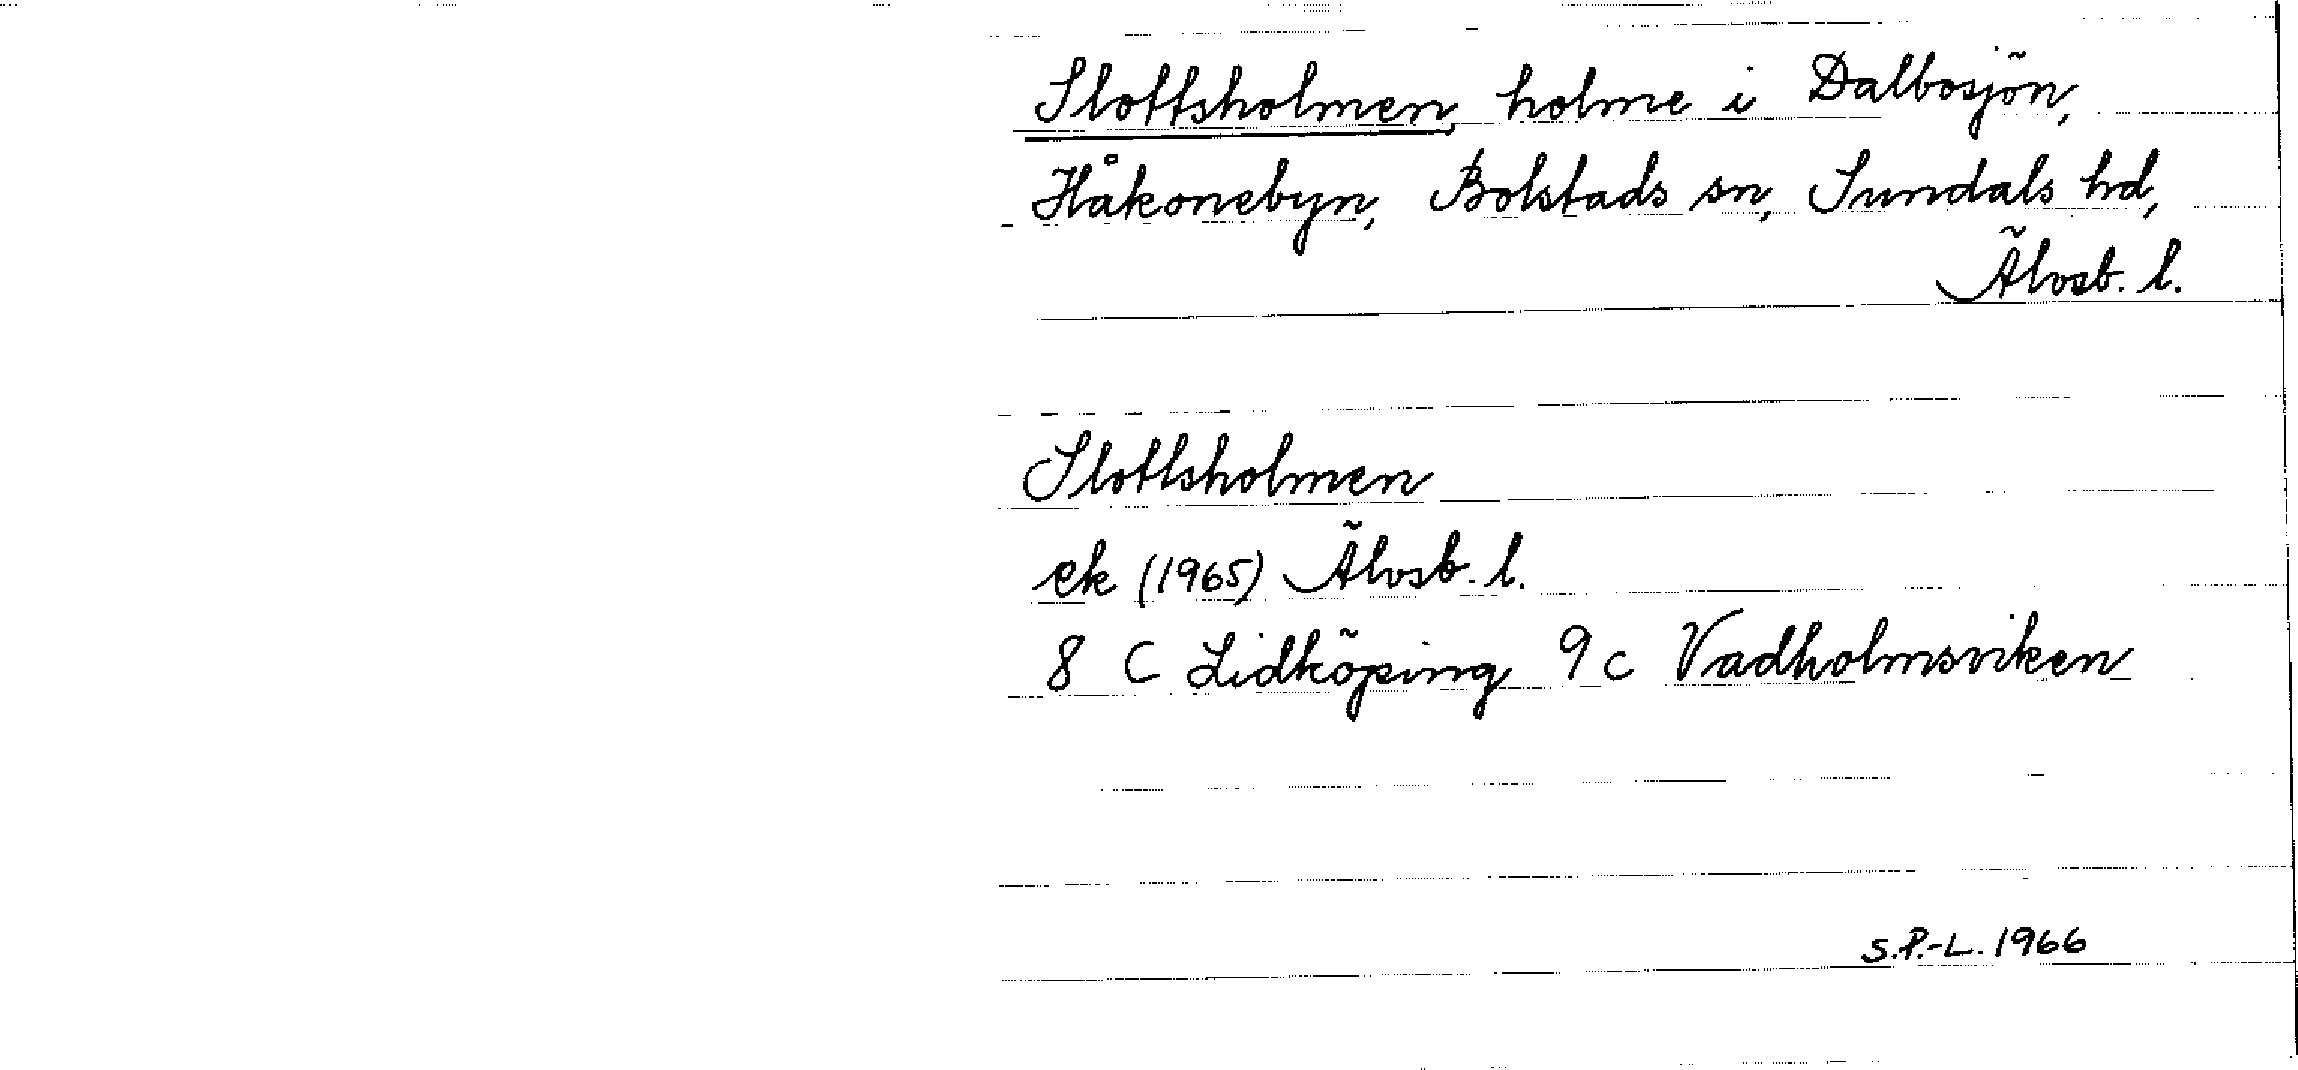 Slottsholmen, holme i Dalbosjön,
Håkonebyn, Bolstads sn, Sundals hd,
Älvsb. l.
Slottsholmen
ek (1965) Älvsb. l.
8 C Lidköping 9c Vadholmsviken
S.P.-L. 1966